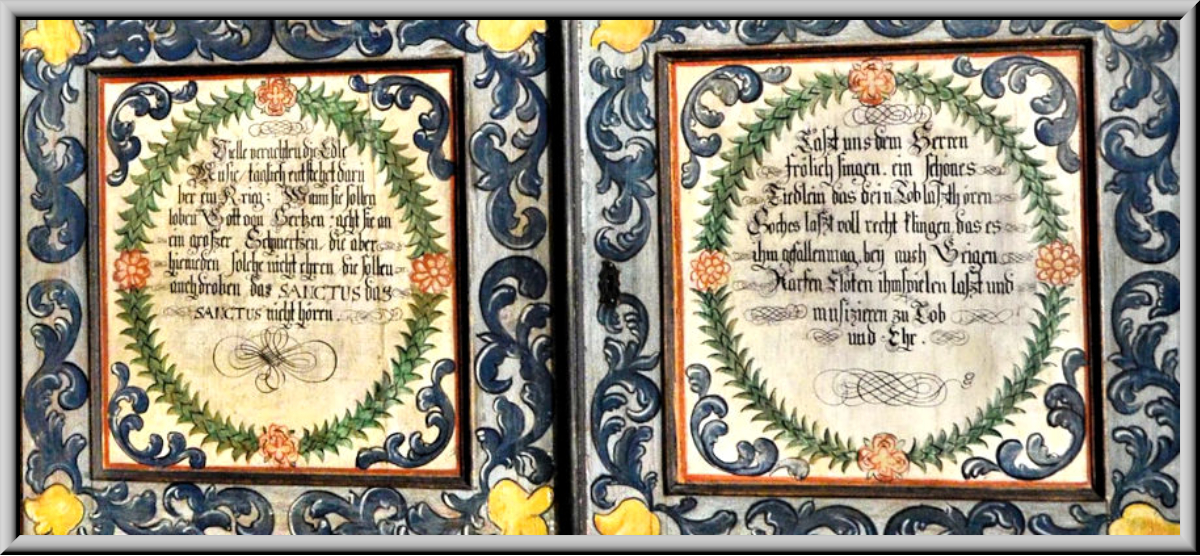 Vielle verachten die Edle
Music, täglich entstehet darü
ber ein Krieg: Wann sie sollen
loben Gott von Hertzen geht sie an
ein großer Schmertzen, die aber
hienieden solche nicht ehren die sollen
auch droben das SANCTUS das
SANCTUS nicht hören.
Laßt uns dem Herren
frölich singen, ein schönes
Liedlein das dein Lob laßt hören
Hoches laßt woll recht klingen, das es
ihm gefallen mag, bey auch Geigen
Harfen Flöten ihm spielen laßt und
musizieren zu Lob
und Ehr.